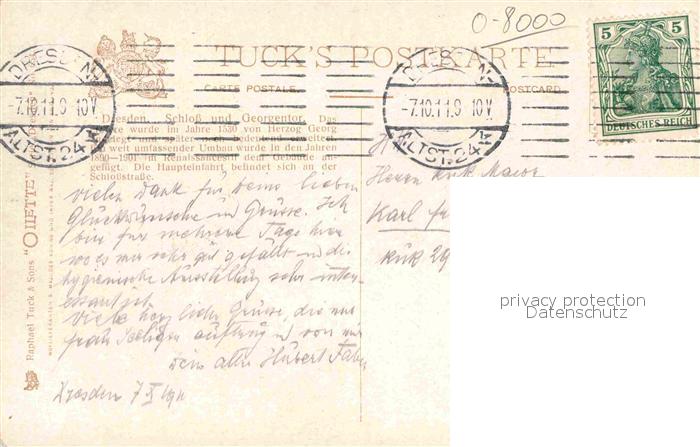 0-8000
TUCK'S POSTKARTE
CARTE POSTALE.
POSTCARD.
DRESDEN
-7.10.11.9-10V.
ALTST. 24
DRESDEN
-7.10.11.9-10V.
ALTST. 24
5 5
DEUTSCHES REICH
Dresden. Schloß und Georgentor. Das
wurde im Jahre 1530 von Herzog Georg
und später
weit umfassender Umbau wurde in den Jahren
1890-1901 im Renaissancestil dem Gebäude an-
gefügt. Die Haupteinfahrt befindet sich an der
Schloßstraße.
Raphael Tuck & Sons "OILETTE"
vielen Dank für Deine lieben
Glückwünsche und Grüsse. Ich
bin für mehrere Tage hier
wo es mir sehr gut gefällt und die
hygienische Ausstellung sehr inter-
essant ist.
Viele herzliche Grüsse, die mir
Frau und von mir
Dein alter Hubert
Dresden 7 X 1911
Herrn k.u.k. Major
Karl
k.u.k. 29
privacy protection
Datenschutz